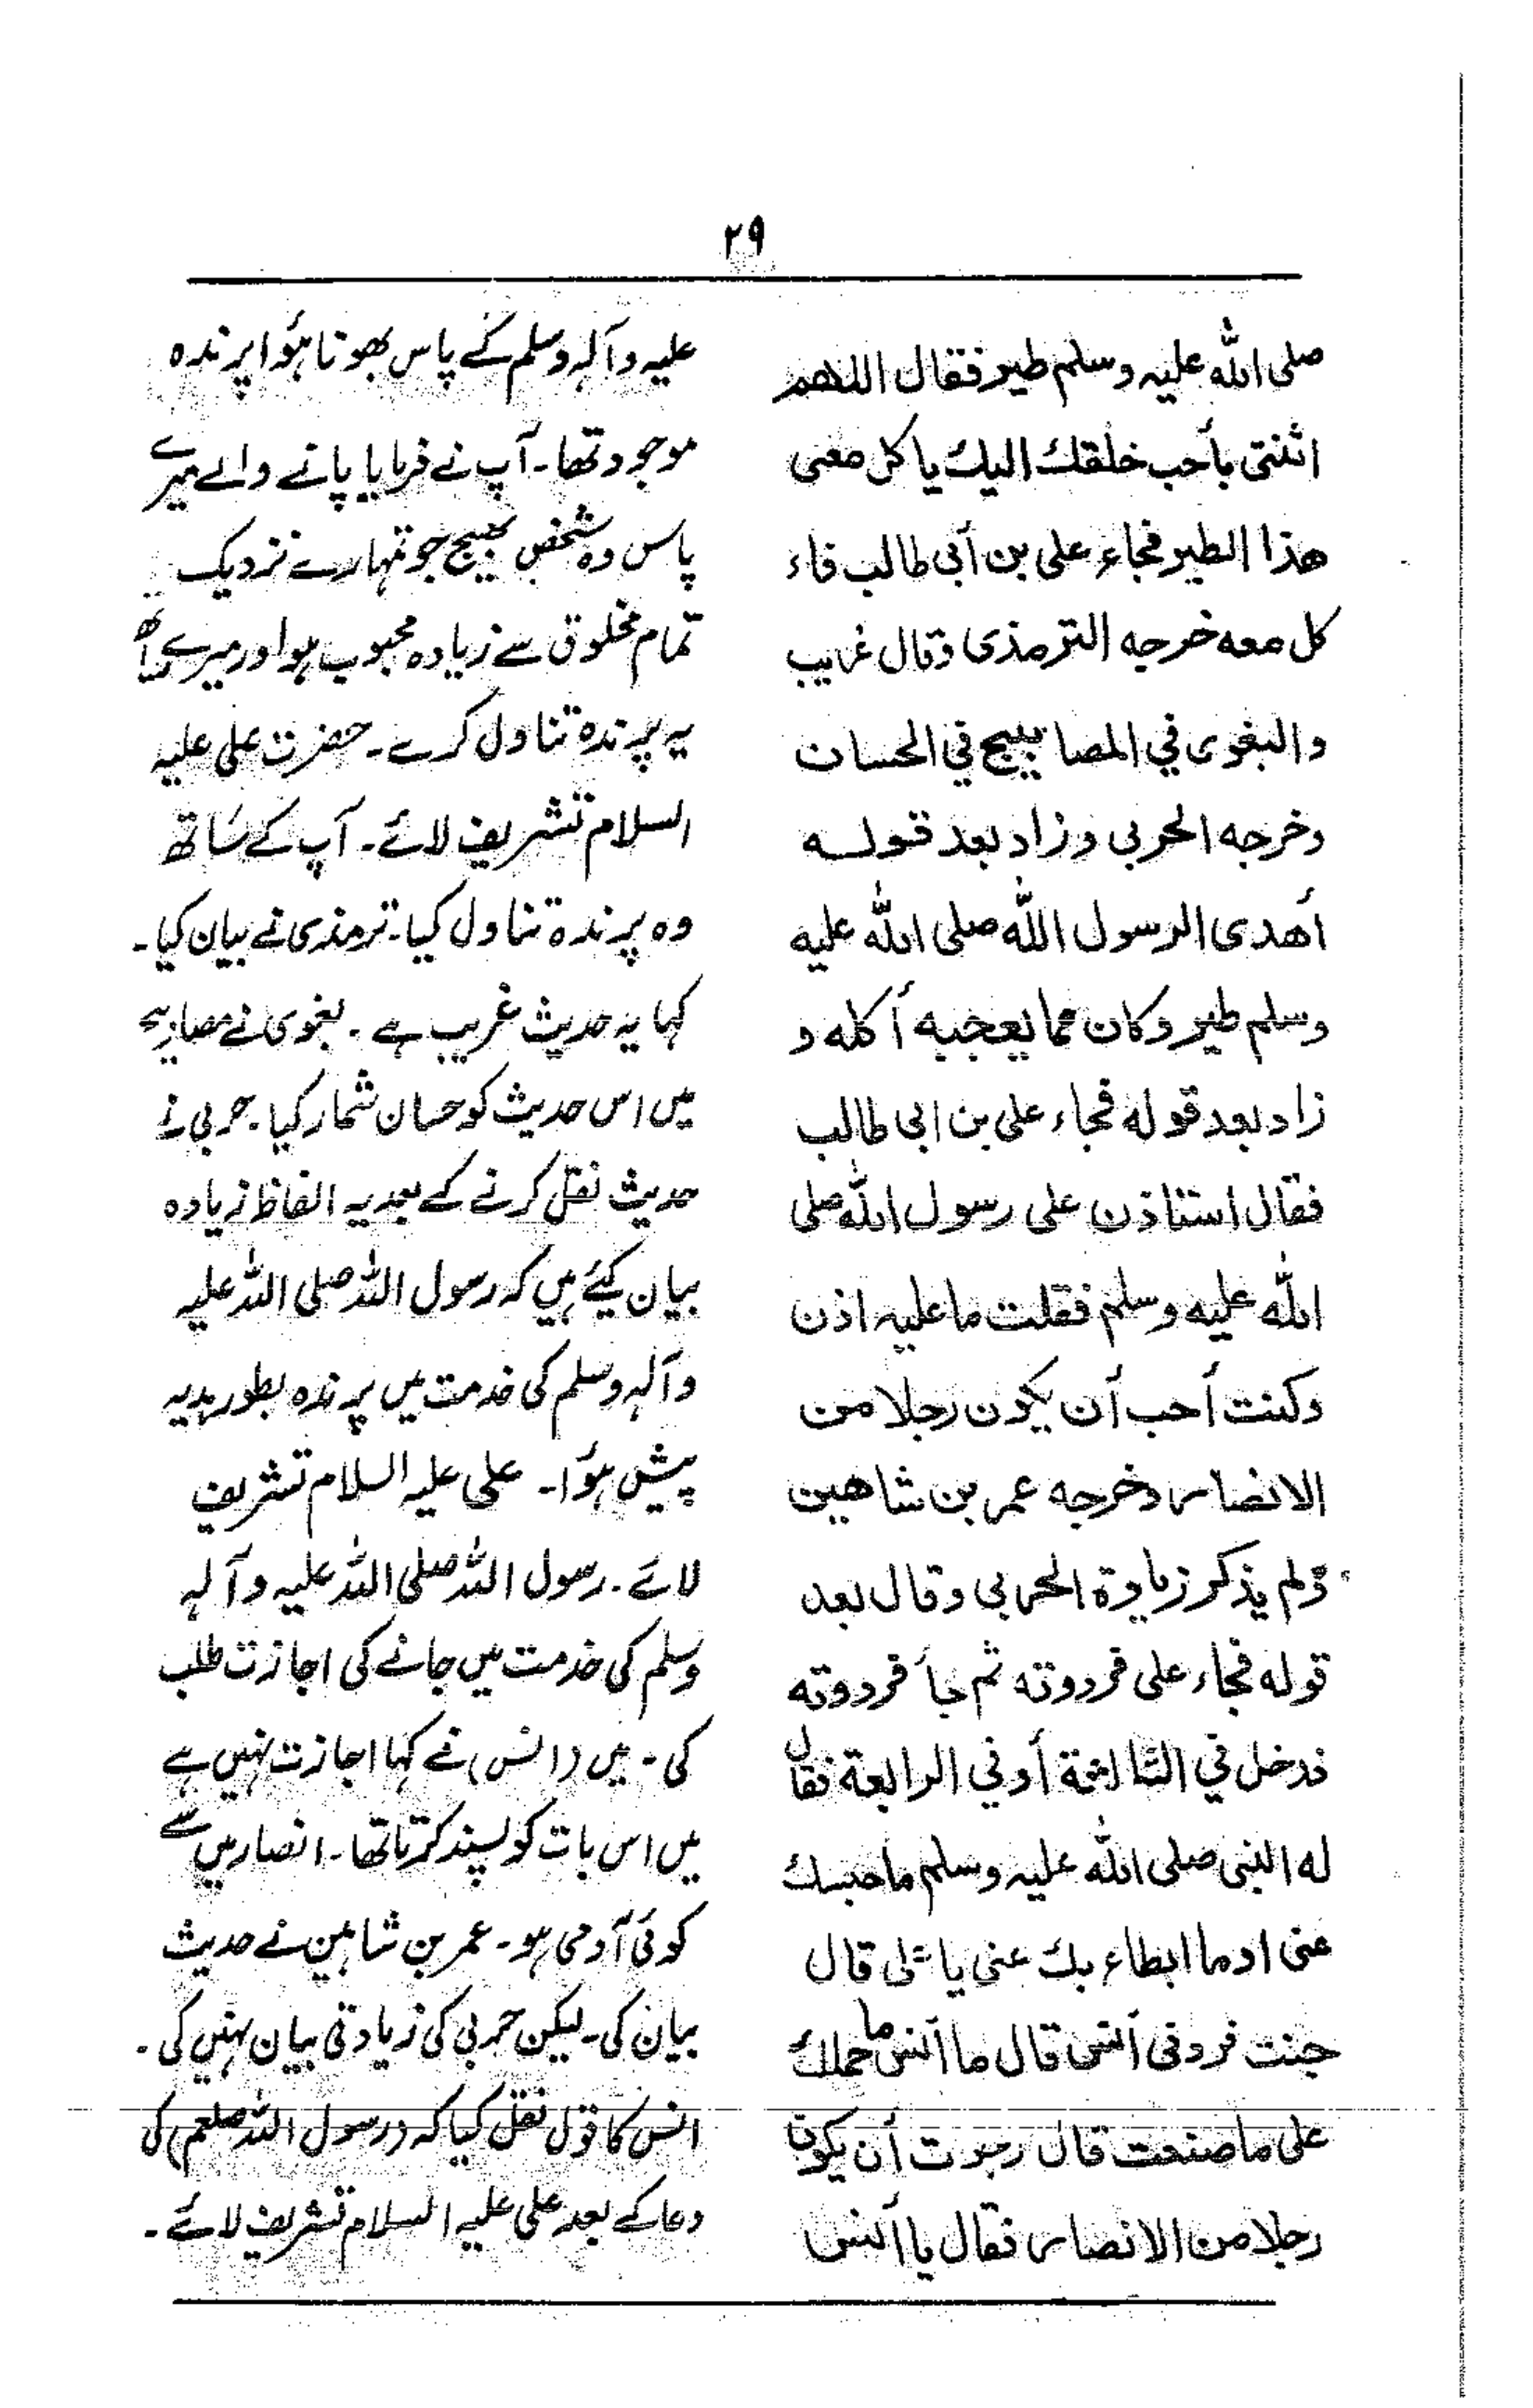 ۲۹
صلى الله عليه وسلم طير فقال اللهم
ائتنى بأحب خلقك اليك ياكل معى
هذا الطير فجاء على بن أبى طالب فاء
كل معه خرجه الترمذى وقال غريب
والبغوى في المصابيح في الحسان
وخرجه الحربى وزاد بعد قوله
أهدى الرسول الله صلى الله عليه
وسلم طير وكان مما يعجبه أكله و
زاد بعد قوله فجاء على بن ابى طالب
فقال استاذن على رسول الله صلى
الله عليه وسلم فقلت ما عليه اذن
وكنت أحب أن يكون رجلا من
الانصار وخرجه عمر بن شاهين
ولم يذكر زيادة الحربى وقال بعد
قوله فجاء على فرددته ثم جأ فرددته
فدخل في الثالثة أو في الرابعة فقال
له النبى صلى الله عليه وسلم ما حبسك
عنى او ما ابطاء بك عنى يا على قال
جئت فردنى أنس قال ما أنس ما حملك
على ما صنعت قال رجوت أن يكون
رجلا من الانصار فقال يا أنس
علیہ وآلہ وسلم کے پاس بھونا ہؤا پرندہ
موجود تھا۔ آپ نے فرمایا پانے والے میرے
پاس وہ شخص بھیج جو تمہارے نزدیک
تمام مخلوق سے زیادہ محبوب ہو اور میرے ساتھ
یہ پرندہ تناول کرے۔ حضرت علی علیہ
السلام تشریف لائے۔ آپ کے ساتھ
وہ پرندہ تناول کیا۔ ترمذی نے بیان کیا۔
کہا یہ حدیث غریب ہے۔ بغوی نے مصابیح
میں اس حدیث کو حسان شمار کیا۔ حربی نے
حدیث نقل کرنے کے بعد یہ الفاظ زیادہ
بیان کیئے ہیں کہ رسول اللہ صلی اللہ علیہ
وآلہ وسلم کی خدمت میں پرندہ بطور ہدیہ
پیش ہؤا۔ علی علیہ السلام تشریف
لائے۔ رسول اللہ صلی اللہ علیہ وآلہ
وسلم کی خدمت میں جانے کی اجازت طلب
کی۔ میں (انس) نے کہا اجازت نہیں ہے
میں اس بات کو پسند کرتا تھا۔ انصار میں سے
کوئی آدمی ہو۔ عمر بن شاہین نے حدیث
بیان کی۔ لیکن حربی کی زیادتی بیان نہیں کی۔
انس کا قول نقل کیا کہ (رسول اللہ صلعم) کی
دعا کے بعد علی علیہ السلام تشریف لائے۔